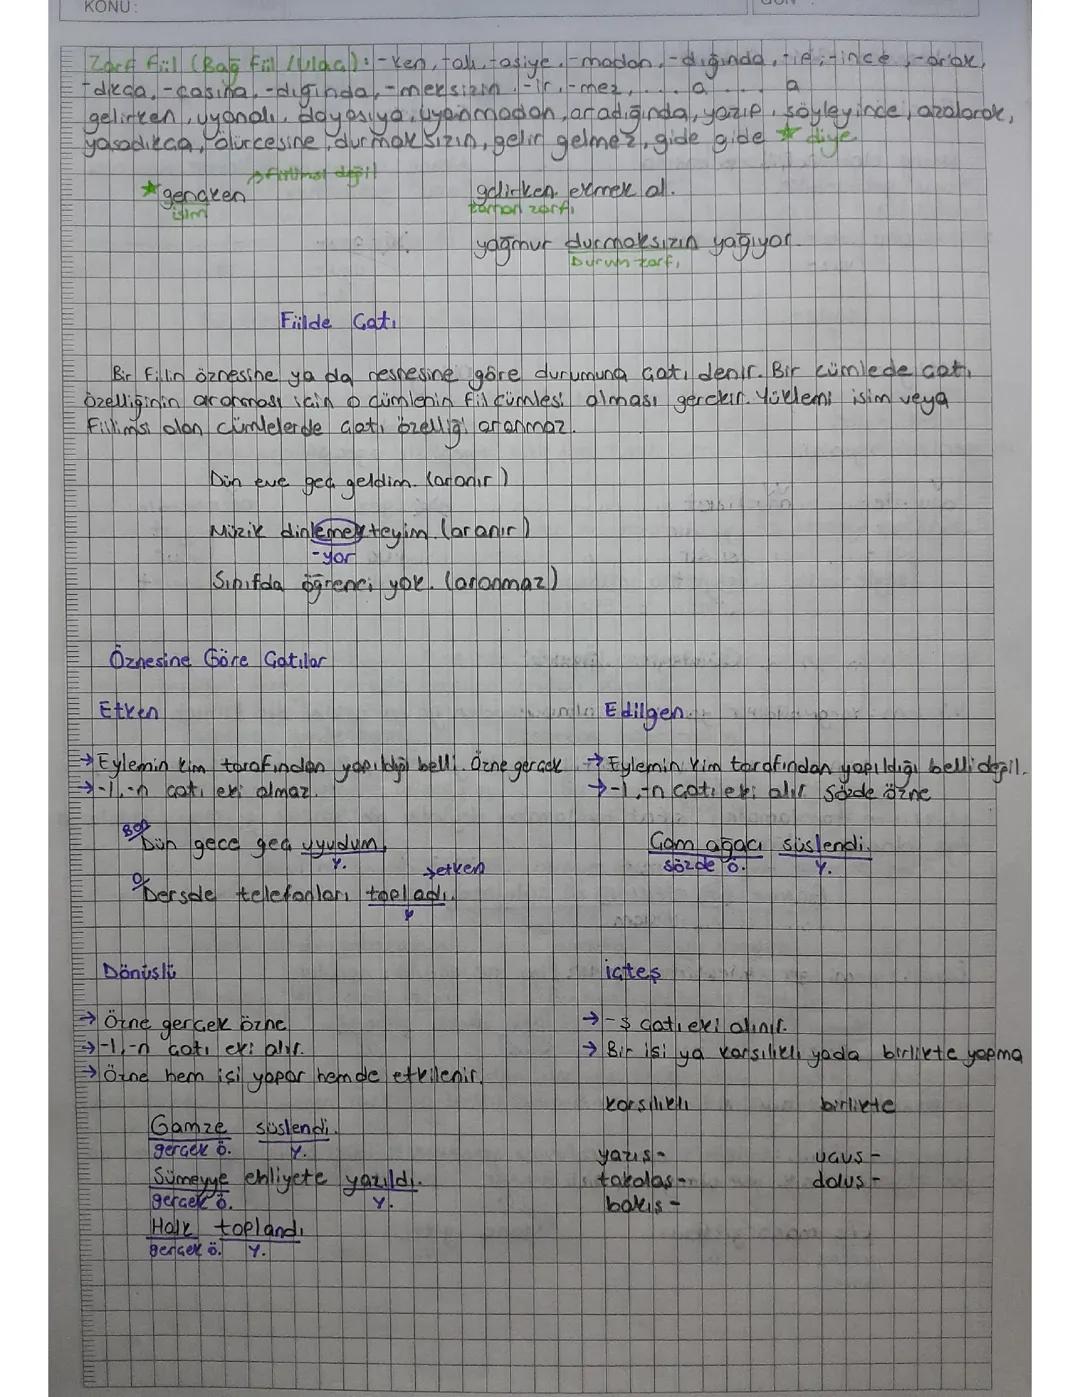 KONU:
Zarf fiil (Bağ fiil /Ulaç): -ken, -alı, -asiye, -madan, -dığında, -ip, -ince, -arak,
-dıkça, -casına, -dığında, -meksizin, -ir, -mez, ... a ... a
gelirken, uyanalı, doyasıya, uyanmadan, aradığında, yazıp, söyleyince, azalarak,
yaşadıkça, ölürcesine, durmaksızın, gelir gelmez, gide gide ★ diye
→fiilimsi değil
★gençken gelirken ekmek al.
isim zaman zarfı
yağmur durmaksızın yağıyor.
Durum zarfı
Fiilde Çatı
Bir fiilin öznesine ya da nesnesine göre durumuna çatı denir. Bir cümlede çatı
özelliğinin aranması için o cümlenin fiil cümlesi olması gerekir. Yüklemi isim veya
fiilimsi olan cümlelerde çatı özelliği aranmaz.
Dün eve geç geldim. (aranır)
Müzik dinlemekteyim. (aranır)
-yor
Sınıfda öğrenci yok. (aranmaz)
Öznesine Göre Çatılar
Etken Edilgen
→Eylemin kim tarafından yapıldığı belli. Özne gerçek →Eylemin kim tarafından yapıldığı belli değil.
→-l,-n çatı eki almaz. →-l,-n çatı eki alır sözde özne
Ben
Dün gece geç uyudum. Çam ağacı süslendi.
Y. sözde ö. Y.
→etken
O
Dersde telefonları topladı.
Y
Dönüşlü İşteş
→ Özne gerçek özne →-ş çatı eki alınır.
→-l,-n çatı eki alır. → Bir işi ya karşılıklı yada birlikte yapma
→Özne hem işi yapar hemde etkilenir.
karşılıklı birlikte
Gamze süslendi.
gerçek ö. Y. yazış- uçuş-
Sümeyye ehliyete yazıldı. tokalaş- doluş-
gerçek ö. Y. bakış-
Halk toplandı
gerçek ö. Y.